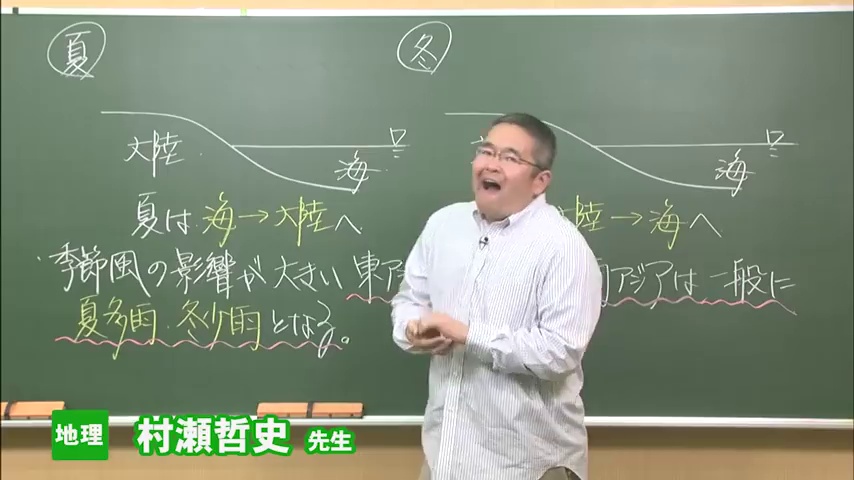 夏
冬
大陸
海
海
夏は 海→大陸へ
大陸→海へ
季節風の影響が大きい 東ア
アジアは一般に
夏多雨・冬少雨となる。
地理 村瀬哲史 先生